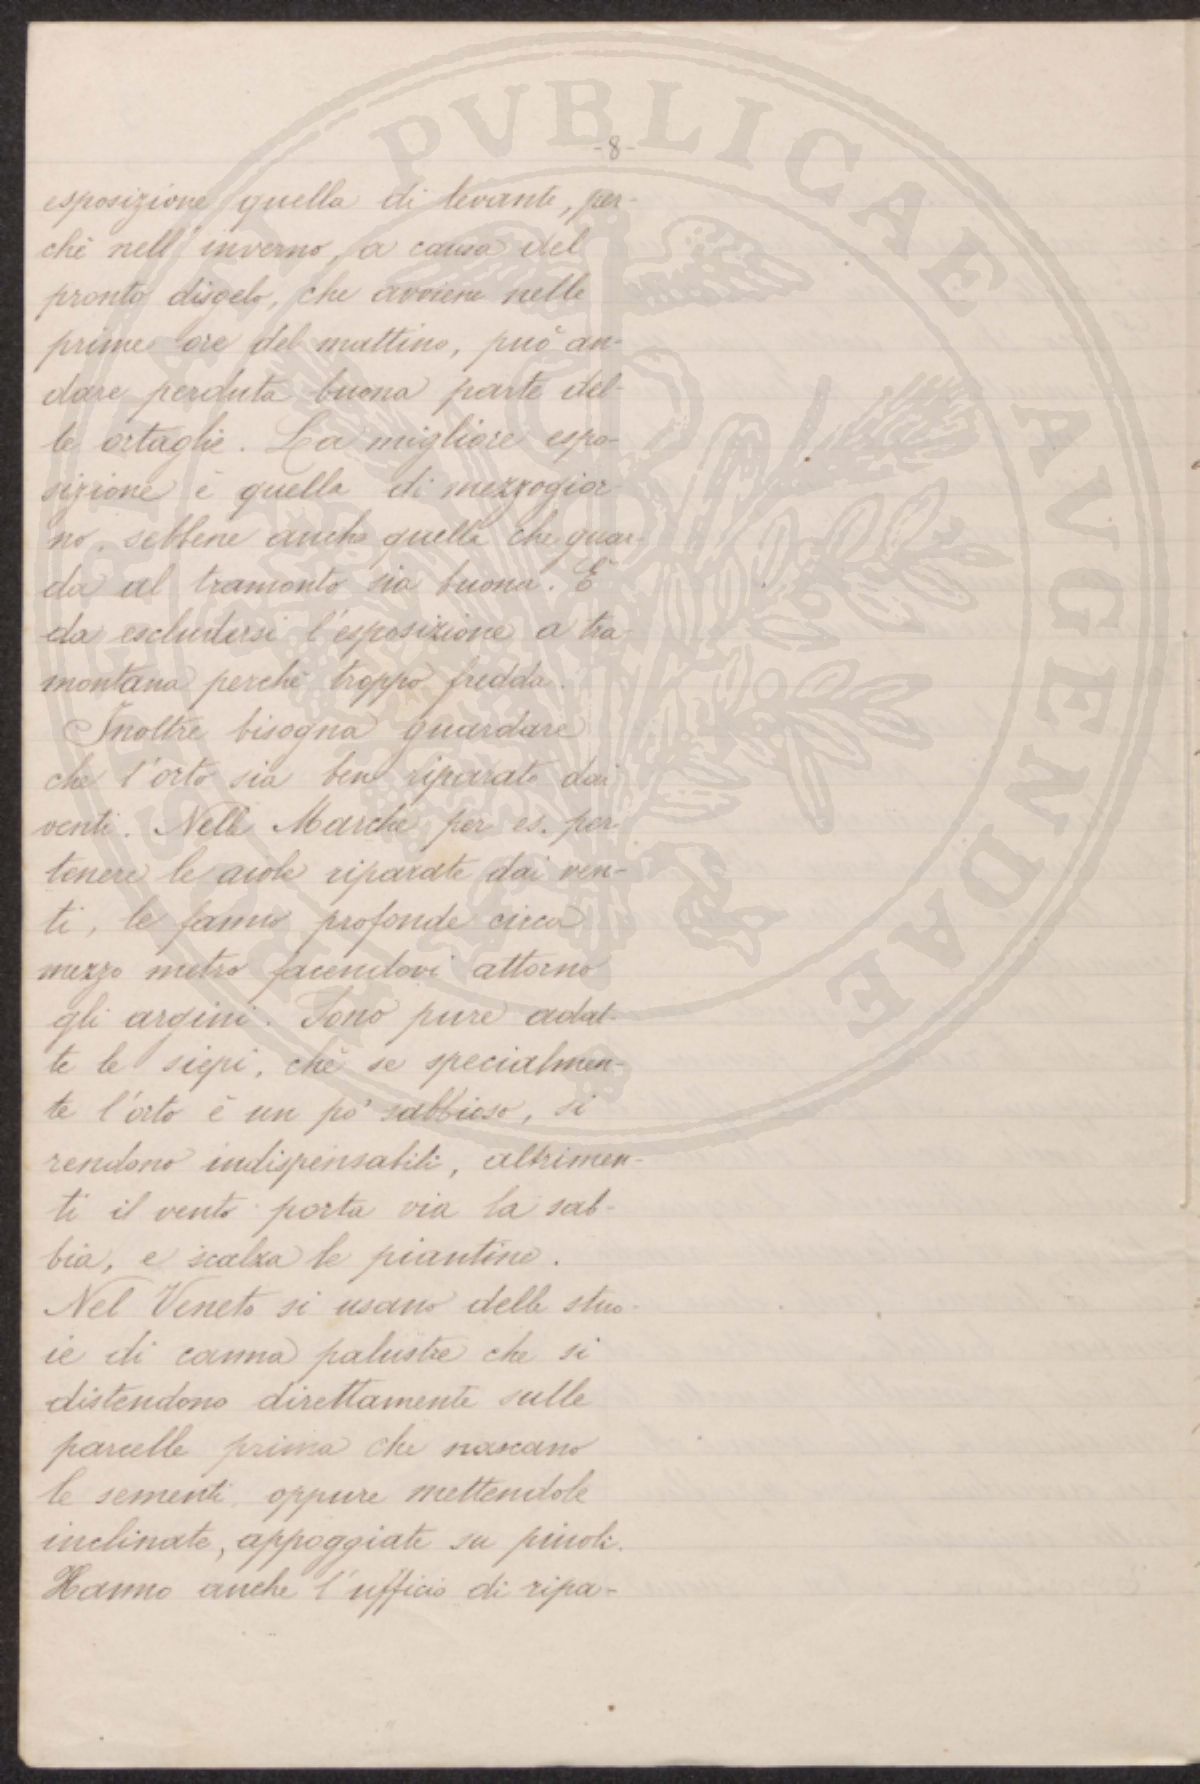 -8-
esposizione quella di levante, per-
chè nell'inverno, a causa del
pronto disgelo, che avviene nelle
prime ore del mattino, può an-
dare perduta buona parte del-
le ortaglie. La migliore espo-
sizione è quella di mezzogior-
no, sebbene anche quella che guar-
da al tramonto sia buona. È
da escludersi l'esposizione a tra-
montana perchè troppo fredda.
Inoltre bisogna guardare
che l'orto sia ben riparato dai
venti. Nelle Marche per es. per
tenere le aiole riparate dai ven-
ti, le fanno profonde circa
mezzo metro facendovi attorno
gli argini. Sono pure adat-
te le siepi, chè se specialmen-
te l'orto è un pò sabbioso, si
rendono indispensabili, altrimen-
ti il vento porta via la sab-
bia, e scalza le piantine.
Nel Veneto si usano delle stuo-
ie di canna palustre che si
distendono direttamente sulle
parcelle prima che nascano
le sementi, oppure mettendole
inclinate, appoggiate su piuoli.
Hanno anche l'ufficio di ripa-
PVBLICAE AVGENDAE